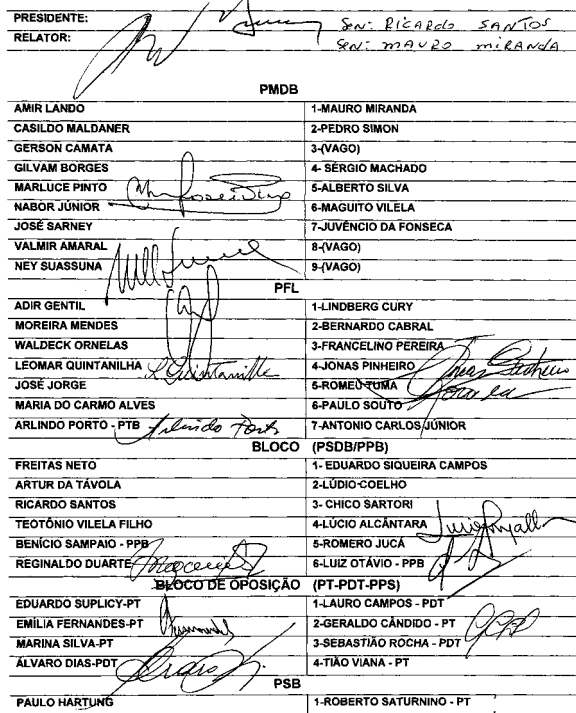 PRESIDENTE: SEN: RICARDO SANTOS
RELATOR: SEN: MAURO MIRANDA
PMDB
AMIR LANDO 1-MAURO MIRANDA
CASILDO MALDANER 2-PEDRO SIMON
GERSON CAMATA 3-(VAGO)
GILVAM BORGES 4- SÉRGIO MACHADO
MARLUCE PINTO 5-ALBERTO SILVA
NABOR JÚNIOR 6-MAGUITO VILELA
JOSÉ SARNEY 7-JUVÊNCIO DA FONSECA
VALMIR AMARAL 8-(VAGO)
NEY SUASSUNA 9-(VAGO)
PFL
ADIR GENTIL 1-LINDBERG CURY
MOREIRA MENDES 2-BERNARDO CABRAL
WALDECK ORNELAS 3-FRANCELINO PEREIRA
LEOMAR QUINTANILHA L Quintanilha 4-JONAS PINHEIRO Jonas Pinheiro
JOSÉ JORGE 5-ROMEU TUMA
MARIA DO CARMO ALVES 6-PAULO SOUTO
ARLINDO PORTO - PTB Arlindo Porto 7-ANTONIO CARLOS JÚNIOR
BLOCO (PSDB/PPB)
FREITAS NETO 1- EDUARDO SIQUEIRA CAMPOS
ARTUR DA TÁVOLA 2-LÚDIO-COELHO
RICARDO SANTOS 3- CHICO SARTORI
TEOTÔNIO VILELA FILHO 4-LÚCIO ALCÂNTARA
BENÍCIO SAMPAIO - PPB 5-ROMERO JUCÁ
REGINALDO DUARTE 6-LUIZ OTÁVIO - PPB
BLOCO DE OPOSIÇÃO (PT-PDT-PPS)
EDUARDO SUPLICY-PT 1-LAURO CAMPOS - PDT
EMÍLIA FERNANDES-PT 2-GERALDO CÂNDIDO - PT
MARINA SILVA-PT 3-SEBASTIÃO ROCHA - PDT
ÁLVARO DIAS-PDT 4-TIÃO VIANA - PT
PSB
PAULO HARTUNG 1-ROBERTO SATURNINO - PT